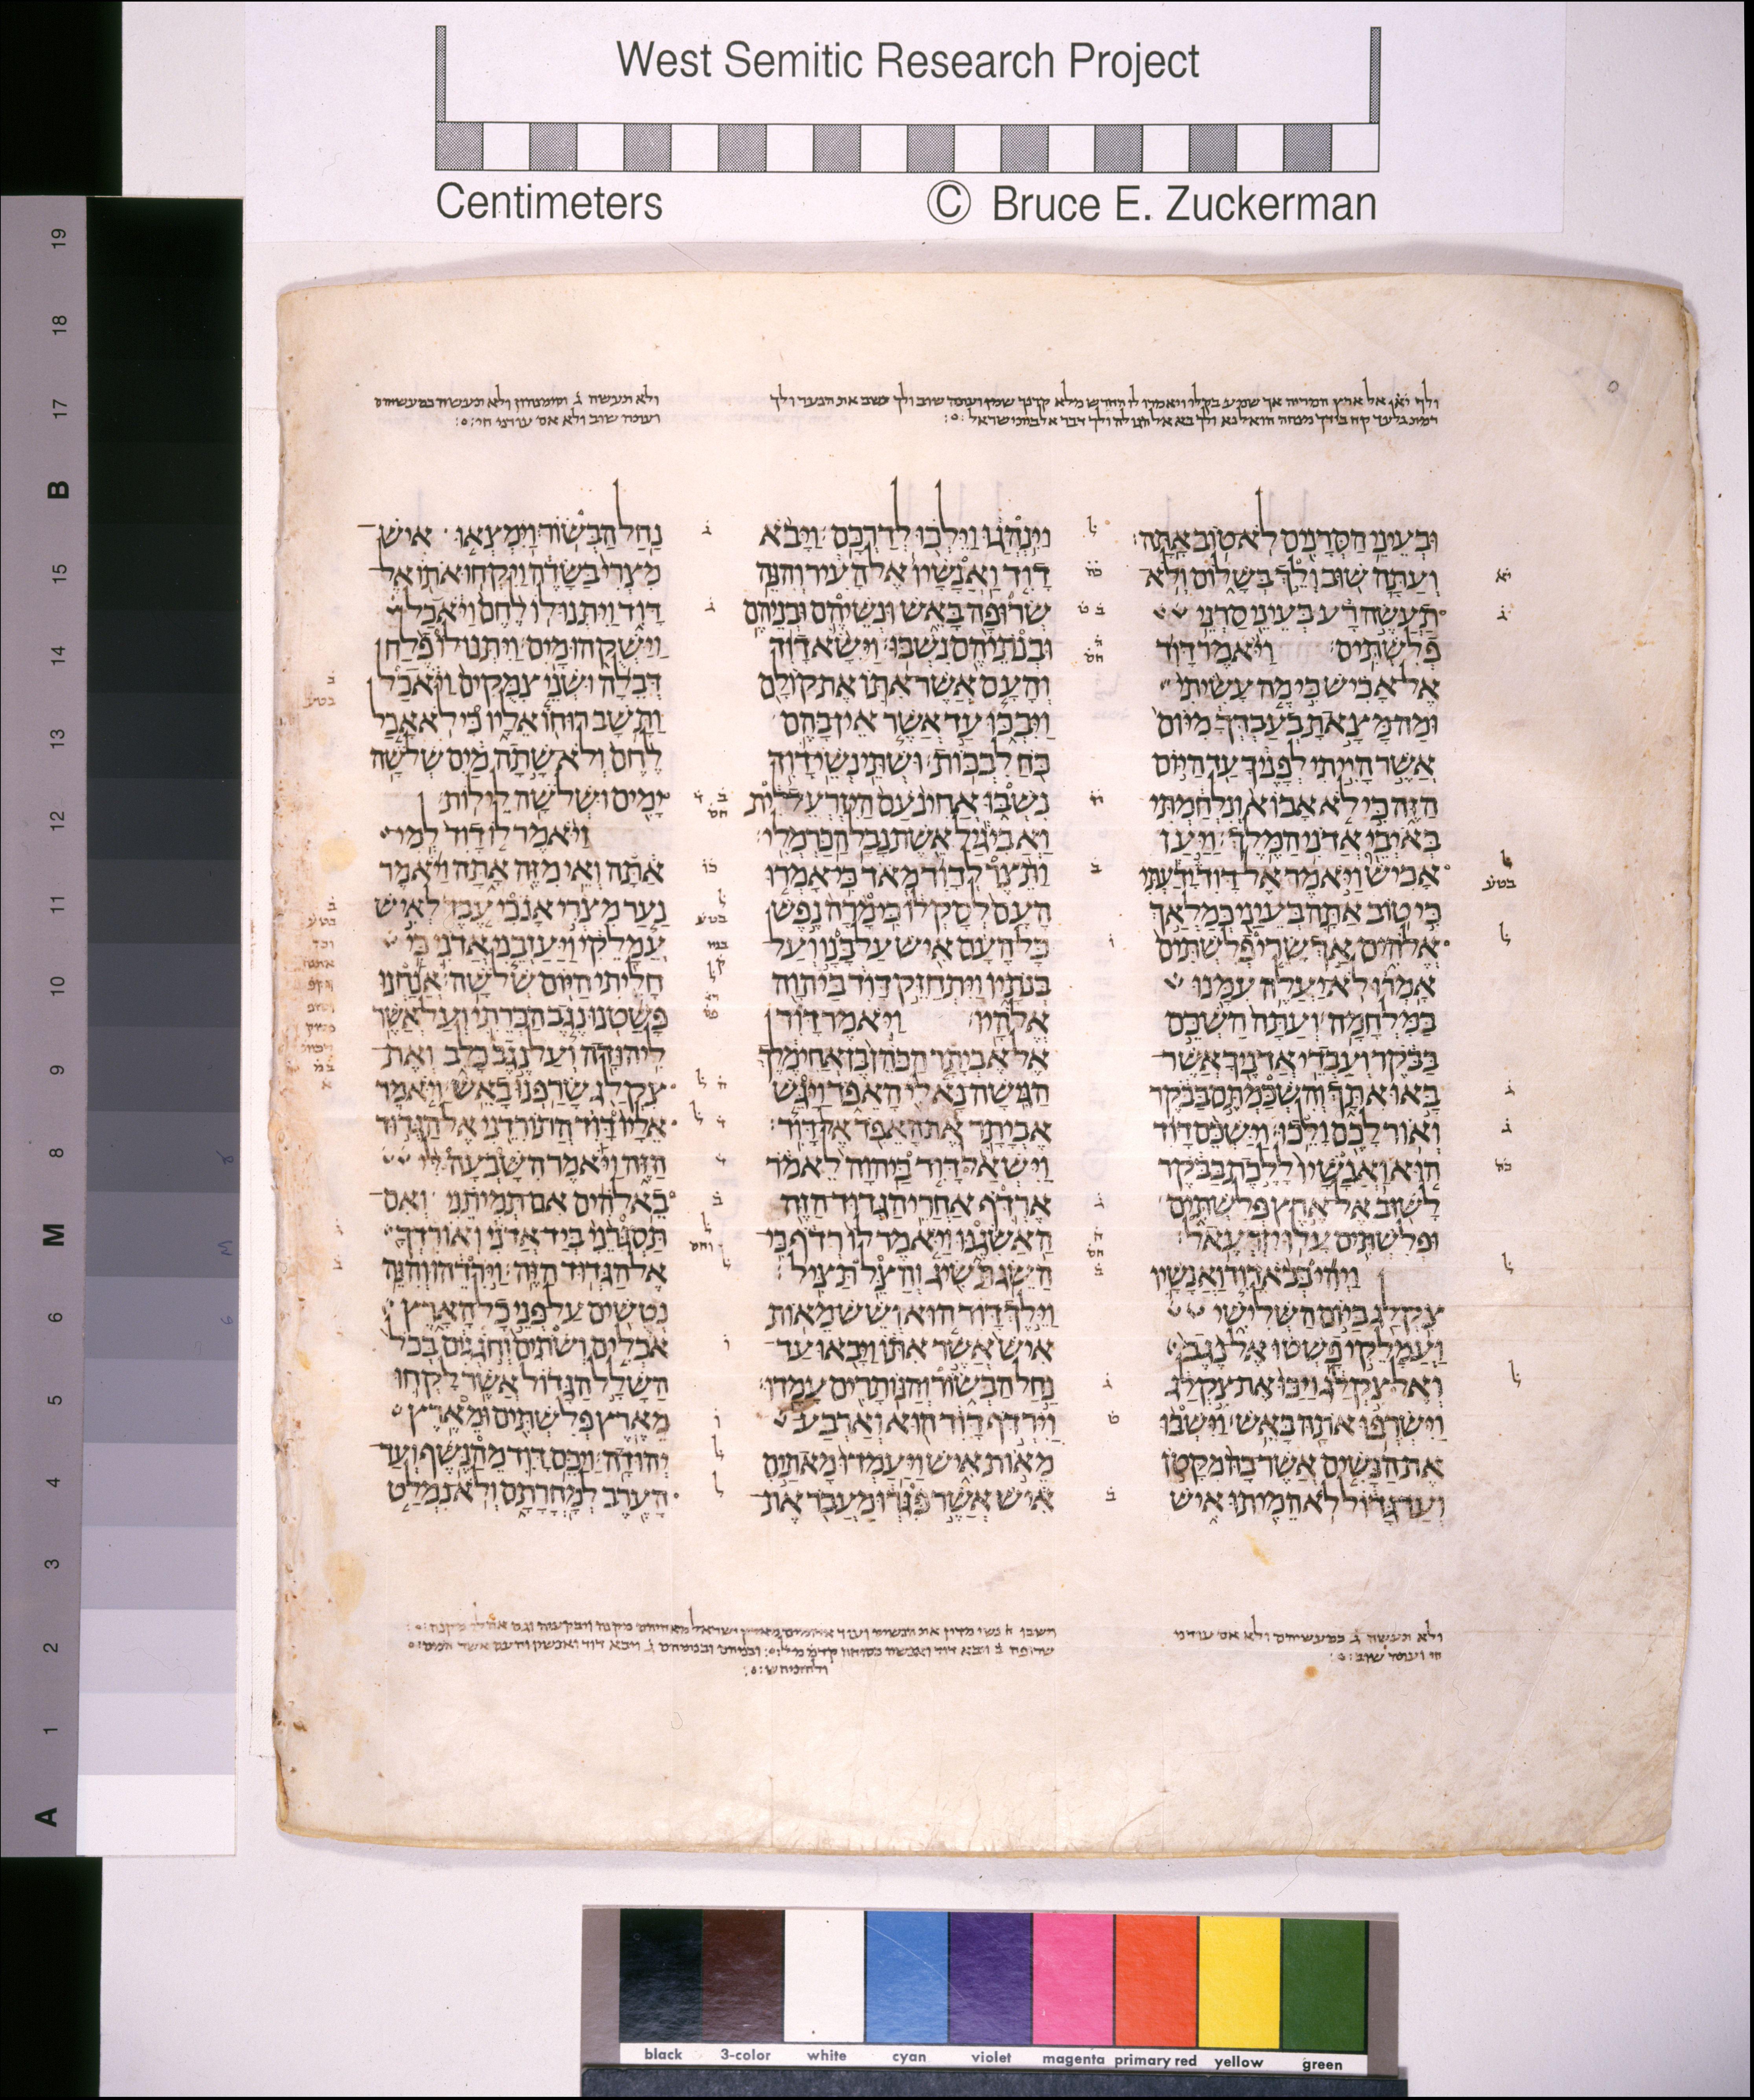 West Semitic Research Project
Centimeters © Bruce E. Zuckerman
וּבְעֵינֵי הַסְּרָנִים לֹא טוֹב אָתָּה׃
וְעַתָּה שׁוּב וְלֵךְ בְּשָׁלוֹם וְלֹא
תַעֲשֶׂה רָע בְּעֵינֵי סַרְנֵי
פְלִשְׁתִּים׃ וַיֹּאמֶר דָּוִד
אֶל אָכִישׁ כִּי מֶה עָשִׂיתִי
וּמַה מָּצָאתָ בְעַבְדְּךָ מִיּוֹם
אֲשֶׁר הָיִיתִי לְפָנֶיךָ עַד הַיּוֹם
הַזֶּה כִּי לֹא אָבוֹא וְנִלְחַמְתִּי
בְּאֹיְבֵי אֲדֹנִי הַמֶּלֶךְ׃ וַיַּעַן
אָכִישׁ וַיֹּאמֶר אֶל דָּוִד יָדַעְתִּי
כִּי טוֹב אַתָּה בְּעֵינַי כְּמַלְאַךְ
אֱלֹהִים אַךְ שָׂרֵי פְלִשְׁתִּים
אָמְרוּ לֹא יַעֲלֶה עִמָּנוּ
בַּמִּלְחָמָה׃ וְעַתָּה הַשְׁכֵּם
בַּבֹּקֶר וְעַבְדֵי אֲדֹנֶיךָ אֲשֶׁר
בָּאוּ אִתָּךְ וְהִשְׁכַּמְתֶּם בַּבֹּקֶר
וְאוֹר לָכֶם וָלֵכוּ׃ וַיַּשְׁכֵּם דָּוִד
הוּא וַאֲנָשָׁיו לָלֶכֶת בַּבֹּקֶר
לָשׁוּב אֶל אֶרֶץ פְּלִשְׁתִּים
וּפְלִשְׁתִּים עָלוּ יִזְרְעֶאל׃
וַיְהִי בְּבֹא דָוִד וַאֲנָשָׁיו
צִקְלַג בַּיּוֹם הַשְּׁלִישִׁי
וַעֲמָלֵקִי פָשְׁטוּ אֶל נֶגֶב
וְאֶל צִקְלַג וַיַּכּוּ אֶת צִקְלַג
וַיִּשְׂרְפוּ אֹתָהּ בָּאֵשׁ׃ וַיִּשְׁבּוּ
אֶת הַנָּשִׁים אֲשֶׁר בָּהּ מִקָּטֹן
וְעַד גָּדוֹל לֹא הֵמִיתוּ אִישׁ
וַיִּנְהֲגוּ וַיֵּלְכוּ לְדַרְכָּם׃ וַיָּבֹא
דָוִד וַאֲנָשָׁיו אֶל הָעִיר וְהִנֵּה
שְׂרוּפָה בָּאֵשׁ וּנְשֵׁיהֶם וּבְנֵיהֶם
וּבְנֹתֵיהֶם נִשְׁבּוּ׃ וַיִּשָּׂא דָוִד
וְהָעָם אֲשֶׁר אִתּוֹ אֶת קוֹלָם
וַיִּבְכּוּ עַד אֲשֶׁר אֵין בָּהֶם
כֹּחַ לִבְכּוֹת׃ וּשְׁתֵּי נְשֵׁי דָוִד
נִשְׁבּוּ אֲחִינֹעַם הַיִּזְרְעֵלִית
וַאֲבִיגַיִל אֵשֶׁת נָבָל הַכַּרְמְלִי׃
וַתֵּצֶר לְדָוִד מְאֹד כִּי אָמְרוּ
הָעָם לְסָקְלוֹ כִּי מָרָה נֶפֶשׁ
כָּל הָעָם אִישׁ עַל בָּנָו וְעַל
בְּנֹתָיו וַיִּתְחַזֵּק דָּוִד בַּיהוָה
אֱלֹהָיו׃ וַיֹּאמֶר דָּוִד
אֶל אֶבְיָתָר הַכֹּהֵן בֶּן אֲחִימֶלֶךְ
הַגִּישָׁה נָּא לִי הָאֵפֹד וַיַּגֵּשׁ
אֶבְיָתָר אֶת הָאֵפֹד אֶל דָּוִד׃
וַיִּשְׁאַל דָּוִד בַּיהוָה לֵאמֹר
אֶרְדֹּף אַחֲרֵי הַגְּדוּד הַזֶּה
הַאַשִּׂגֶנּוּ וַיֹּאמֶר לוֹ רְדֹף כִּי
הַשֵּׂג תַּשִּׂיג וְהַצֵּל תַּצִּיל׃
וַיֵּלֶךְ דָּוִד הוּא וְשֵׁשׁ מֵאוֹת
אִישׁ אֲשֶׁר אִתּוֹ וַיָּבֹאוּ עַד
נַחַל הַבְּשׂוֹר וְהַנּוֹתָרִים עָמָדוּ׃
וַיִּרְדֹּף דָּוִד הוּא וְאַרְבַּע
מֵאוֹת אִישׁ וַיַּעַמְדוּ מָאתַיִם
אִישׁ אֲשֶׁר פִּגְּרוּ מֵעֲבֹר אֶת
נַחַל הַבְּשׂוֹר׃ וַיִּמְצְאוּ אִישׁ
מִצְרִי בַּשָּׂדֶה וַיִּקְחוּ אֹתוֹ אֶל
דָּוִד וַיִּתְּנוּ לוֹ לֶחֶם וַיֹּאכַל
וַיַּשְׁקֻהוּ מָיִם׃ וַיִּתְּנוּ לוֹ פֶלַח
דְּבֵלָה וּשְׁנֵי צִמֻּקִים וַיֹּאכַל
וַתָּשָׁב רוּחוֹ אֵלָיו כִּי לֹא אָכַל
לֶחֶם וְלֹא שָׁתָה מַיִם שְׁלֹשָׁה
יָמִים וּשְׁלֹשָׁה לֵילוֹת׃
וַיֹּאמֶר לוֹ דָוִד לְמִי
אַתָּה וְאֵי מִזֶּה אָתָּה וַיֹּאמֶר
נַעַר מִצְרִי אָנֹכִי עֶבֶד לְאִישׁ
עֲמָלֵקִי וַיַּעַזְבֵנִי אֲדֹנִי כִּי
חָלִיתִי הַיּוֹם שְׁלֹשָׁה׃ אֲנַחְנוּ
פָּשַׁטְנוּ נֶגֶב הַכְּרֵתִי וְעַל אֲשֶׁר
לִיהוּדָה וְעַל נֶגֶב כָּלֵב וְאֶת
צִקְלַג שָׂרַפְנוּ בָאֵשׁ׃ וַיֹּאמֶר
אֵלָיו דָּוִד הֲתוֹרִדֵנִי אֶל הַגְּדוּד
הַזֶּה וַיֹּאמֶר הִשָּׁבְעָה לִּי
בֵאלֹהִים אִם תְּמִיתֵנִי וְאִם
תַּסְגִּרֵנִי בְּיַד אֲדֹנִי וְאוֹרִדְךָ
אֶל הַגְּדוּד הַזֶּה׃ וַיֹּרִדֵהוּ וְהִנֵּה
נְטֻשִׁים עַל פְּנֵי כָל הָאָרֶץ
אֹכְלִים וְשֹׁתִים וְחֹגְגִים בְּכֹל
הַשָּׁלָל הַגָּדוֹל אֲשֶׁר לָקְחוּ
מֵאֶרֶץ פְּלִשְׁתִּים וּמֵאֶרֶץ
יְהוּדָה׃ וַיַּכֵּם דָּוִד מֵהַנֶּשֶׁף וְעַד
הָעֶרֶב לְמָחֳרָתָם וְלֹא נִמְלַט
black 3-color white cyan violet magenta primary red yellow green
19
18
17
B
15
14
13
12
11
10
9
8
M
6
5
4
3
2
1
A